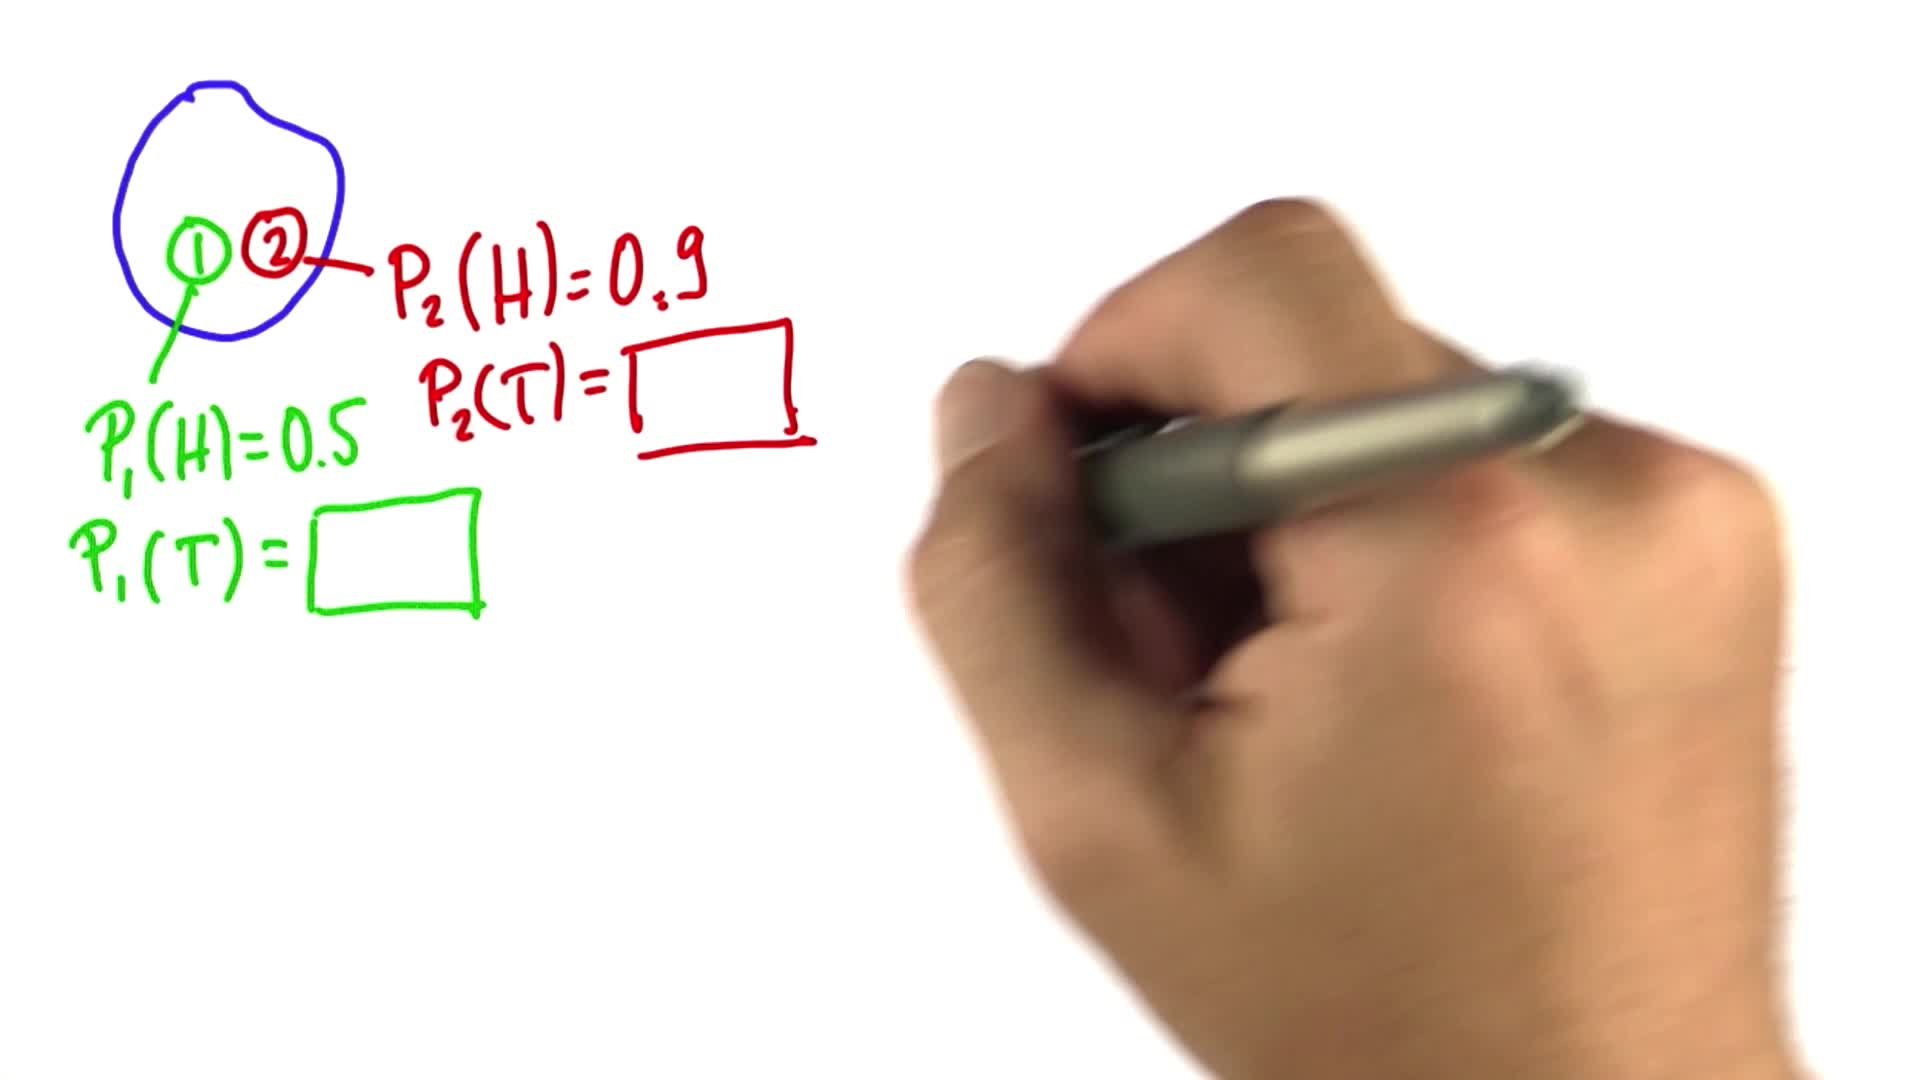 1 2
P₂(H)=0.9
P₂(T)=
P₁(H)=0.5
P₁(T)=